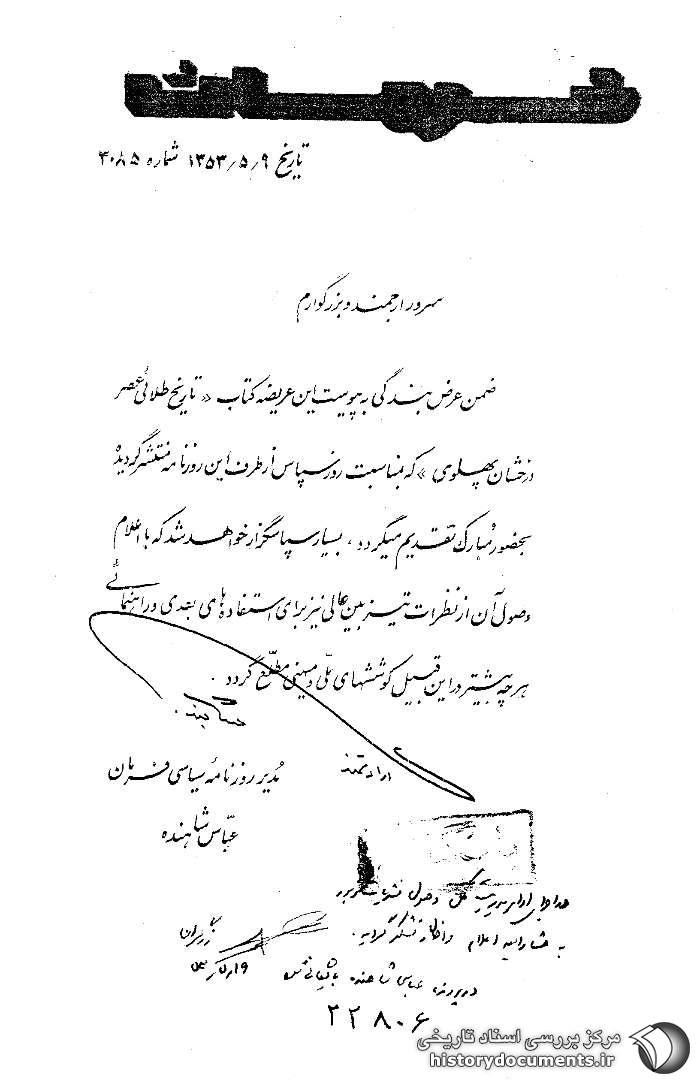 فرمان
تاریخ ۱۳۵۳/۵/۹ شماره ۳۰۸۵
سرور ارجمند و بزرگوارم
ضمن عرض بندگی به پیوست این عریضه کتاب « تاریخ طلائی عصر
درخشان پهلوی » که بمناسبت روز سپاس از طرف این روزنامه منتشر گردیده
بحضور مبارک تقدیم میگردد ، بسیار سپاسگزار خواهد شد که با اعلام
وصول آن از نظرات تیزبین عالی نیز برای استفاده های بعدی و راهنمائی
هرچه بیشتر در این قبیل کوششهای ملی و میهنی مطلع گردد .
ارادتمند
مدیر روزنامه سیاسی فرمان
عباس شاهنده
وصول
به مشارالیه اعلام و اظهار تشکر گردید .
در پرونده عباس شاهنده بایگانی شود
۲۲۸۰۶
مرکز بررسی اسناد تاریخی
historydocuments.ir